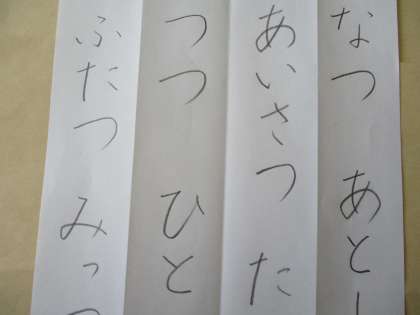 なつ あと
あいさつ た
つつ ひと
ふたつ みっつ